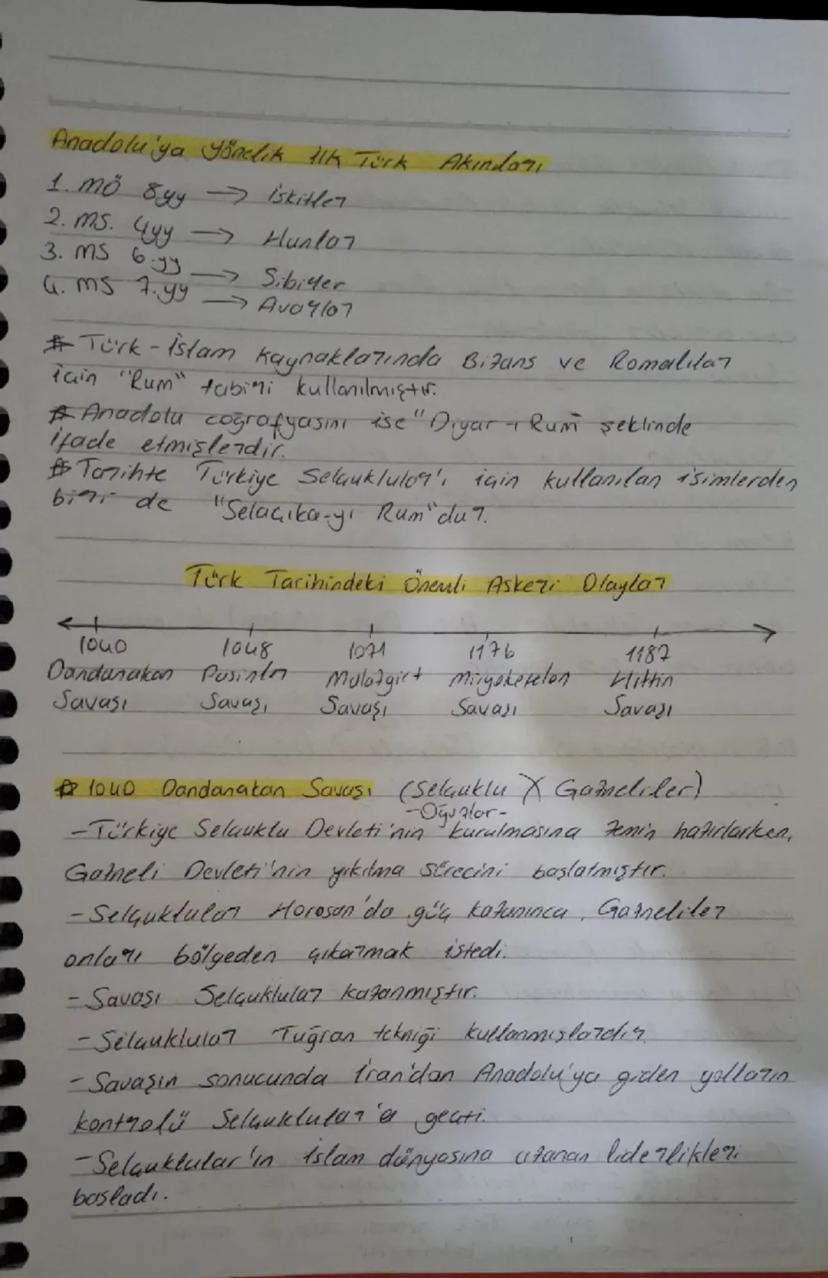 Anadolu'ya Yönelik İlk Türk Akınları
1. MÖ 8yy → İskitler
2. MS. 4yy → Hunlar
3. MS 6.yy → Sibirler
4. MS 7.yy → Avarlar
# Türk-İslam Kaynaklarında Bizans ve Romalılar
için "Rum" tabiri kullanılmıştır.
# Anadolu coğrafyasını ise "Diyar-ı Rum" şeklinde
ifade etmişlerdir.
# Tarihte Türkiye Selçukluları için kullanılan isimlerden
biri de "Selaçika-yı Rum"dur.
Türk Tarihindeki Önemli Askeri Olaylar
1040 1048 1071 1176 1187
Dandanakan Pasinler Malazgirt Miryokefalon Hittin
Savaşı Savaşı Savaşı Savaşı Savaşı
# 1040 Dandanakan Savaşı (Selçuklu X Gazneliler)
-Oğuzlar-
-Türkiye Selçuklu Devleti'nin kurulmasına zemin hazırlarken,
Gazneli Devleti'nin yıkılma sürecini başlatmıştır.
-Selçuklular Horosan'da güç kazanınca, Gazneliler
onları bölgeden çıkarmak istedi.
- Savaşı Selçuklular kazanmıştır.
- Selçuklular Tuğran tekniği kullanmışlardır.
- Savaşın sonucunda İran'dan Anadolu'ya giden yolların
kontrolü Selçuklular'a geçti.
-Selçuklular'ın İslam dünyasına uzanan liderlikleri
başladı.